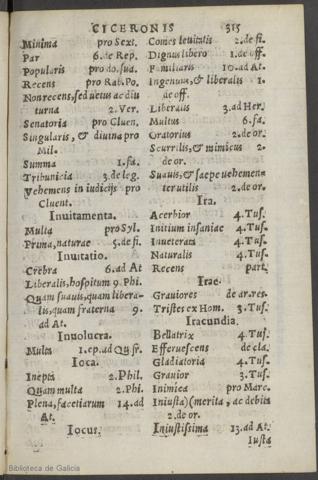 CICERONIS 315
Minima pro Sext.
Par 6. de Rep.
Popularis pro do. sua.
Recens pro Rab. Po.
Non recens, sed uetus ac diu
turna 2. Ver.
Senatoria pro Cluen.
Singularis, & diuina pro
Mil.
Summa 1. fa.
Tribunicia 3. de leg.
Vehemens in iudicijs pro
Cluent.
Inuitamenta.
Multa pro Syl.
Prima, naturae 5. de fi.
Inuitatio.
Crebra 6. ad At
Liberalis, hospitum 9. Phi.
Quam suauis, quam libera-
lis, quam fraterna 9.
ad At.
Inuolucra.
Multa 1. ep. ad Q. fr.
Ioca.
Inepta 2. Phil.
Quam multa 2. Phi.
Plena, facetiarum 14. ad
At.
Iocus.
Comes leuitatis 2. de fi.
Dignus libero 1. de off.
Familiaris 10. ad At.
Ingenuus, & liberalis 1.
de off.
Liberalis 3. ad Her.
Multus 6. fa.
Oratorius 2. de or.
Scurrilis, & mimicus 2.
de or.
Suauis, & saepe uehemen-
ter utilis 2. de or.
Ira.
Acerbior 4. Tus.
Initium insaniae 4. Tus.
Inueterata 4. Tus.
Naturalis 4. Tus.
Recens part.
Irae.
Grauiores de ar. res.
Tristes ex Hom. 3. Tus.
Iracundia.
Bellatrix 4. Tus.
Efferuescens de cla.
Gladiatoria 4. Tus.
Grauior 3. Tus.
Inimica pro Marc.
Iniusta) (merita, ac debita
2. de or.
Iniustissima 13. ad At.
Iusta
Biblioteca de Galicia